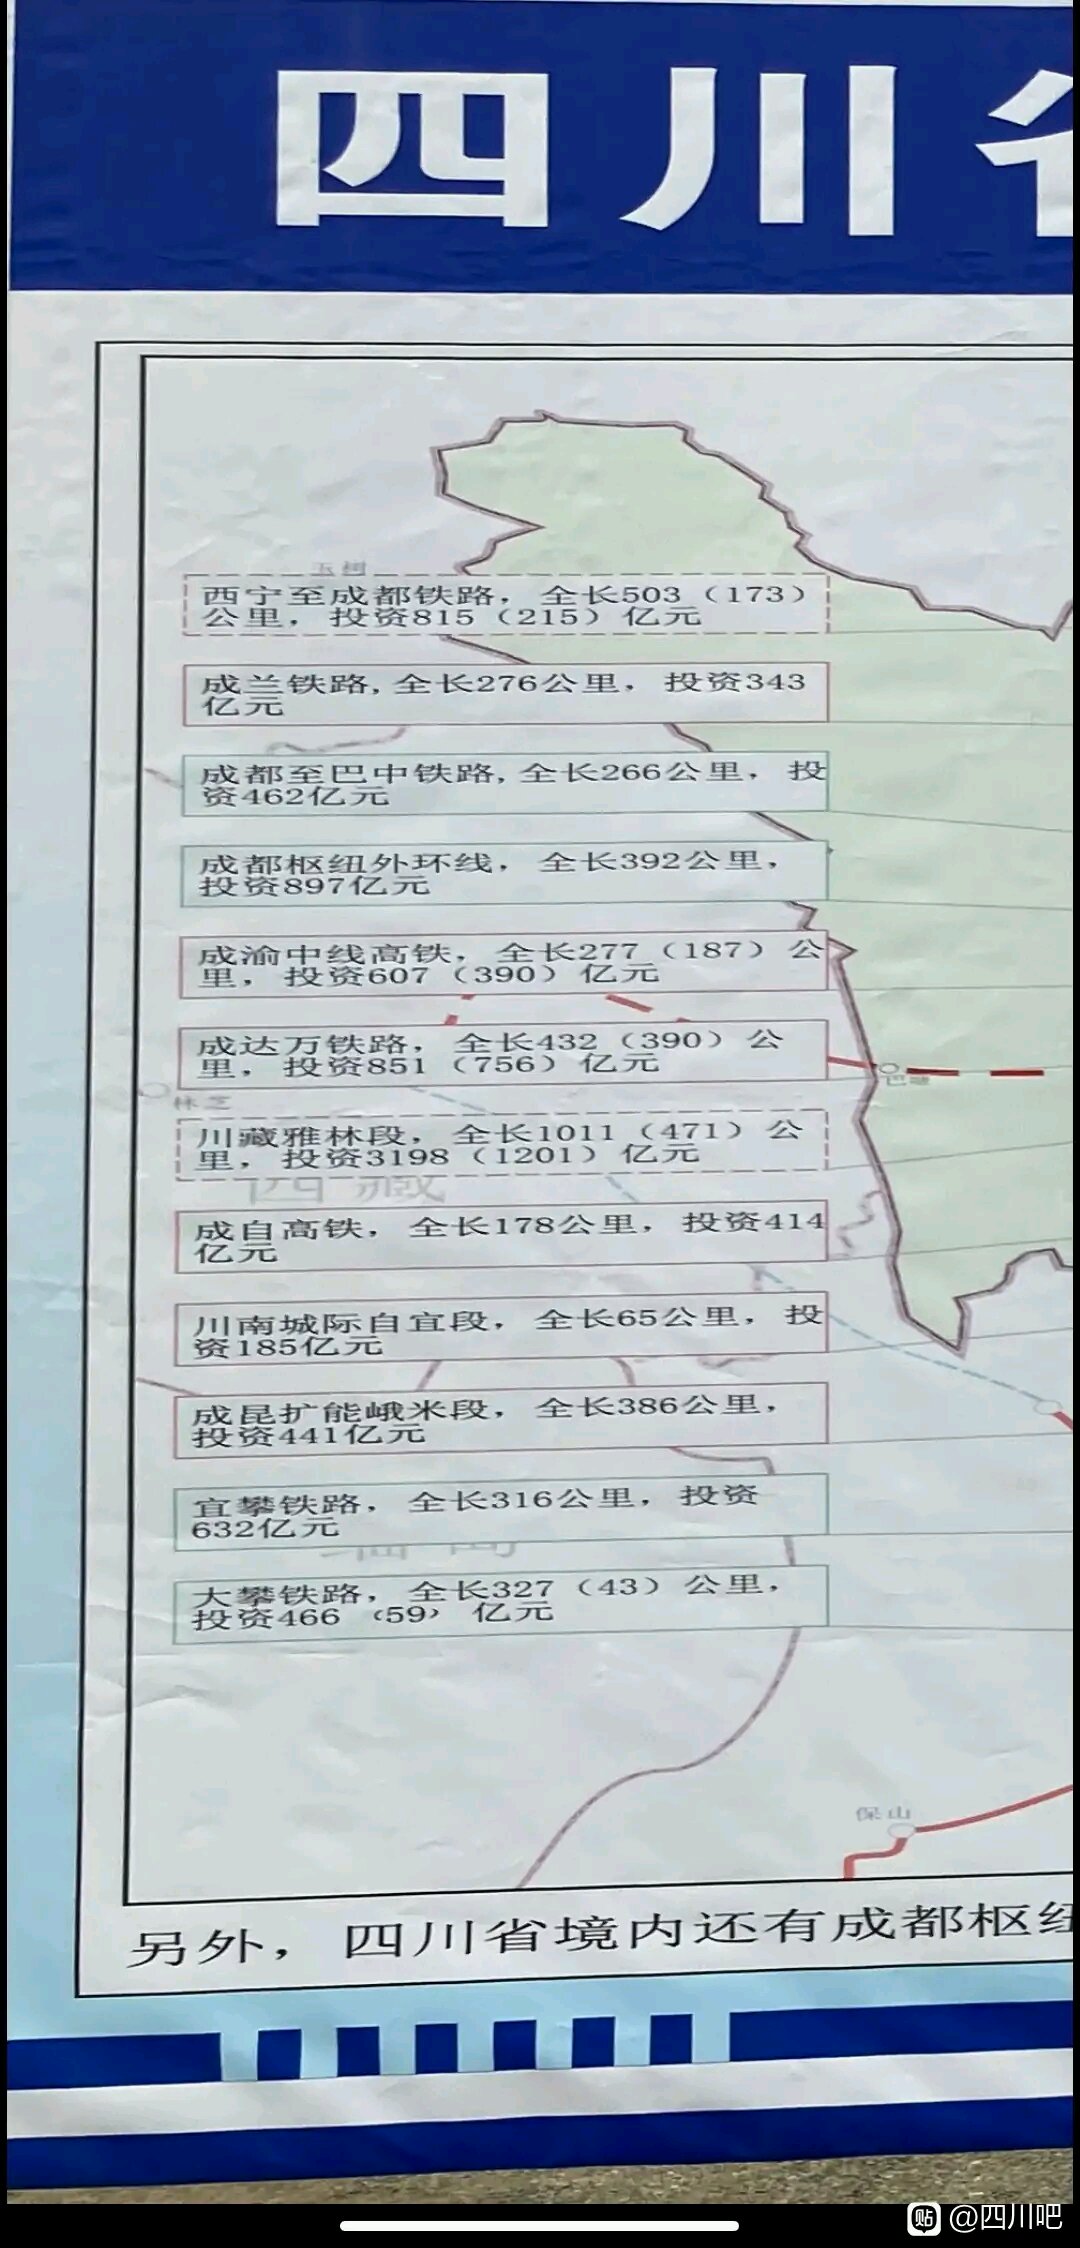 四川省
玉树
西宁至成都铁路，全长503（173）
公里，投资815（215）亿元
成兰铁路, 全长276公里，投资343
亿元
成都至巴中铁路, 全长266公里，投
资462亿元
成都枢纽外环线，全长392公里，
投资897亿元
成渝中线高铁，全长277（187）公
里，投资607（390）亿元
成达万铁路，全长432（390）公
里，投资851（756）亿元
巴塘
林芝
川藏雅林段，全长1011（471）公
里，投资3198（1201）亿元
西藏
成自高铁，全长178公里，投资414
亿元
川南城际自宜段，全长65公里，投
资185亿元
成昆扩能峨米段，全长386公里，
投资441亿元
宜攀铁路，全长316公里，投资
632亿元
大攀铁路，全长327（43）公里，
投资466（59）亿元
保山
另外，四川省境内还有成都枢纽
贴 @四川吧